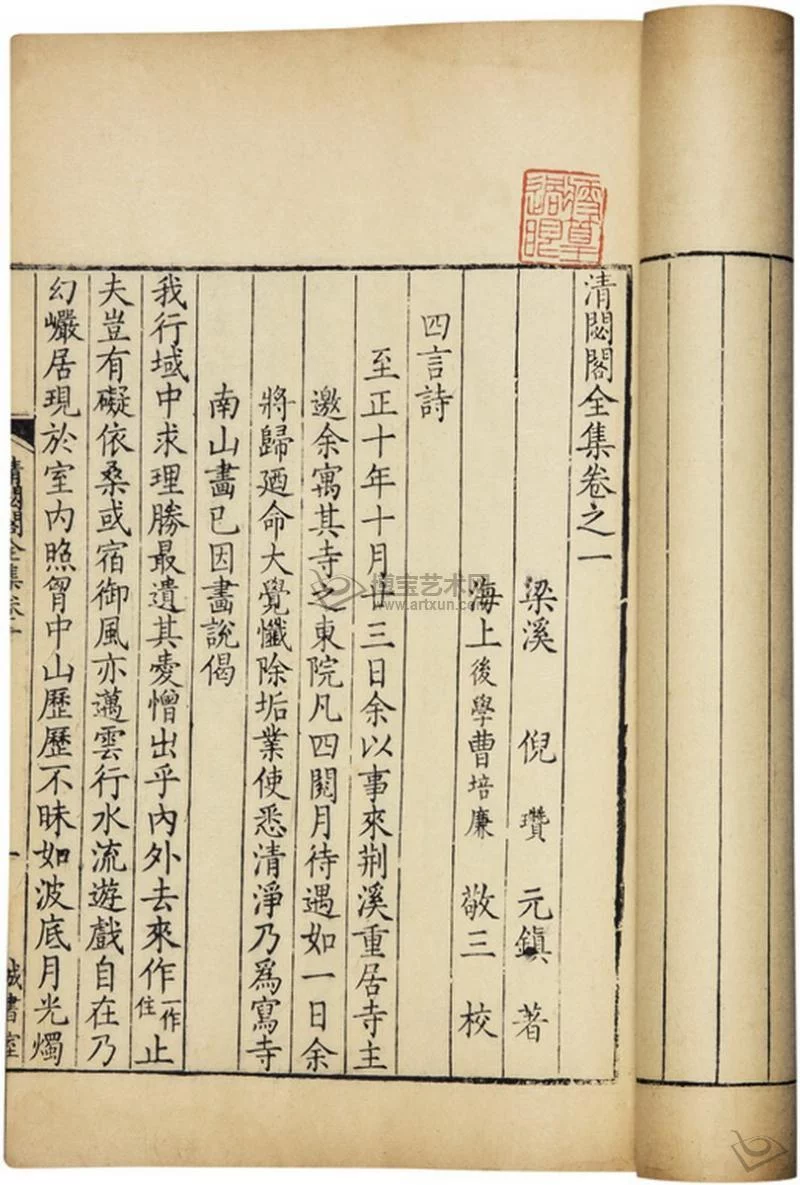 清閟閣全集卷之一
梁溪 倪瓚 元鎮 著
海上後學曹培廉 敬三 校
四言詩
至正十年十月廿三日余以事來荆溪重居寺主
邀余寓其寺之東院凡四閱月待遇如一日余
將歸廼命大覺懺除垢業使悉清淨乃爲寫寺
南山畫已因畫說偈
我行域中求理勝最遺其愛憎出乎內外去來作一作住止
夫豈有礙依桑或宿御風亦邁雲行水流遊戲自在乃
幻巗居現於室內照胷中山歷歷不昧如波底月光燭
清閟閣全集卷一
一
城書室
博宝艺术网
www.artxun.com